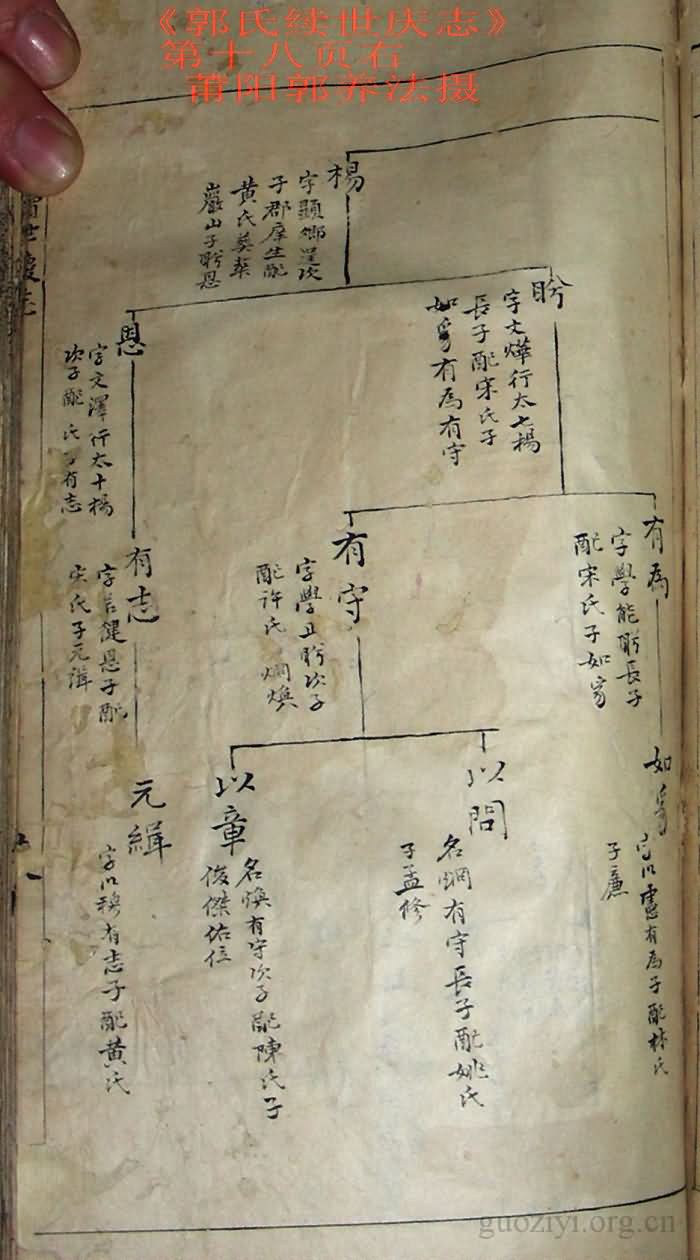 《郭氏续世庆志》
第十八页右
莆阳郭养法摄
楊
字顯卿
子郡庠生配
黄氏葬
巖山子盻恩
盻
字文燁行太七楊
長子配宋氏子
有為有守
恩
字文澤行太十楊
次子配 氏子有志
有為
字學能盻長子
配宋氏子如
有守
字學 盻次子
配許氏 焕
有志
字 健恩子配
宋氏子元緝
如
以憲有為子配林氏
子廉
以問
名炯有守長子配姚氏
子孟修
以章
名焕有守次子配陳氏子
俊傑佑位
元緝
字以穆有志子配黄氏
guoziyi.org.cn